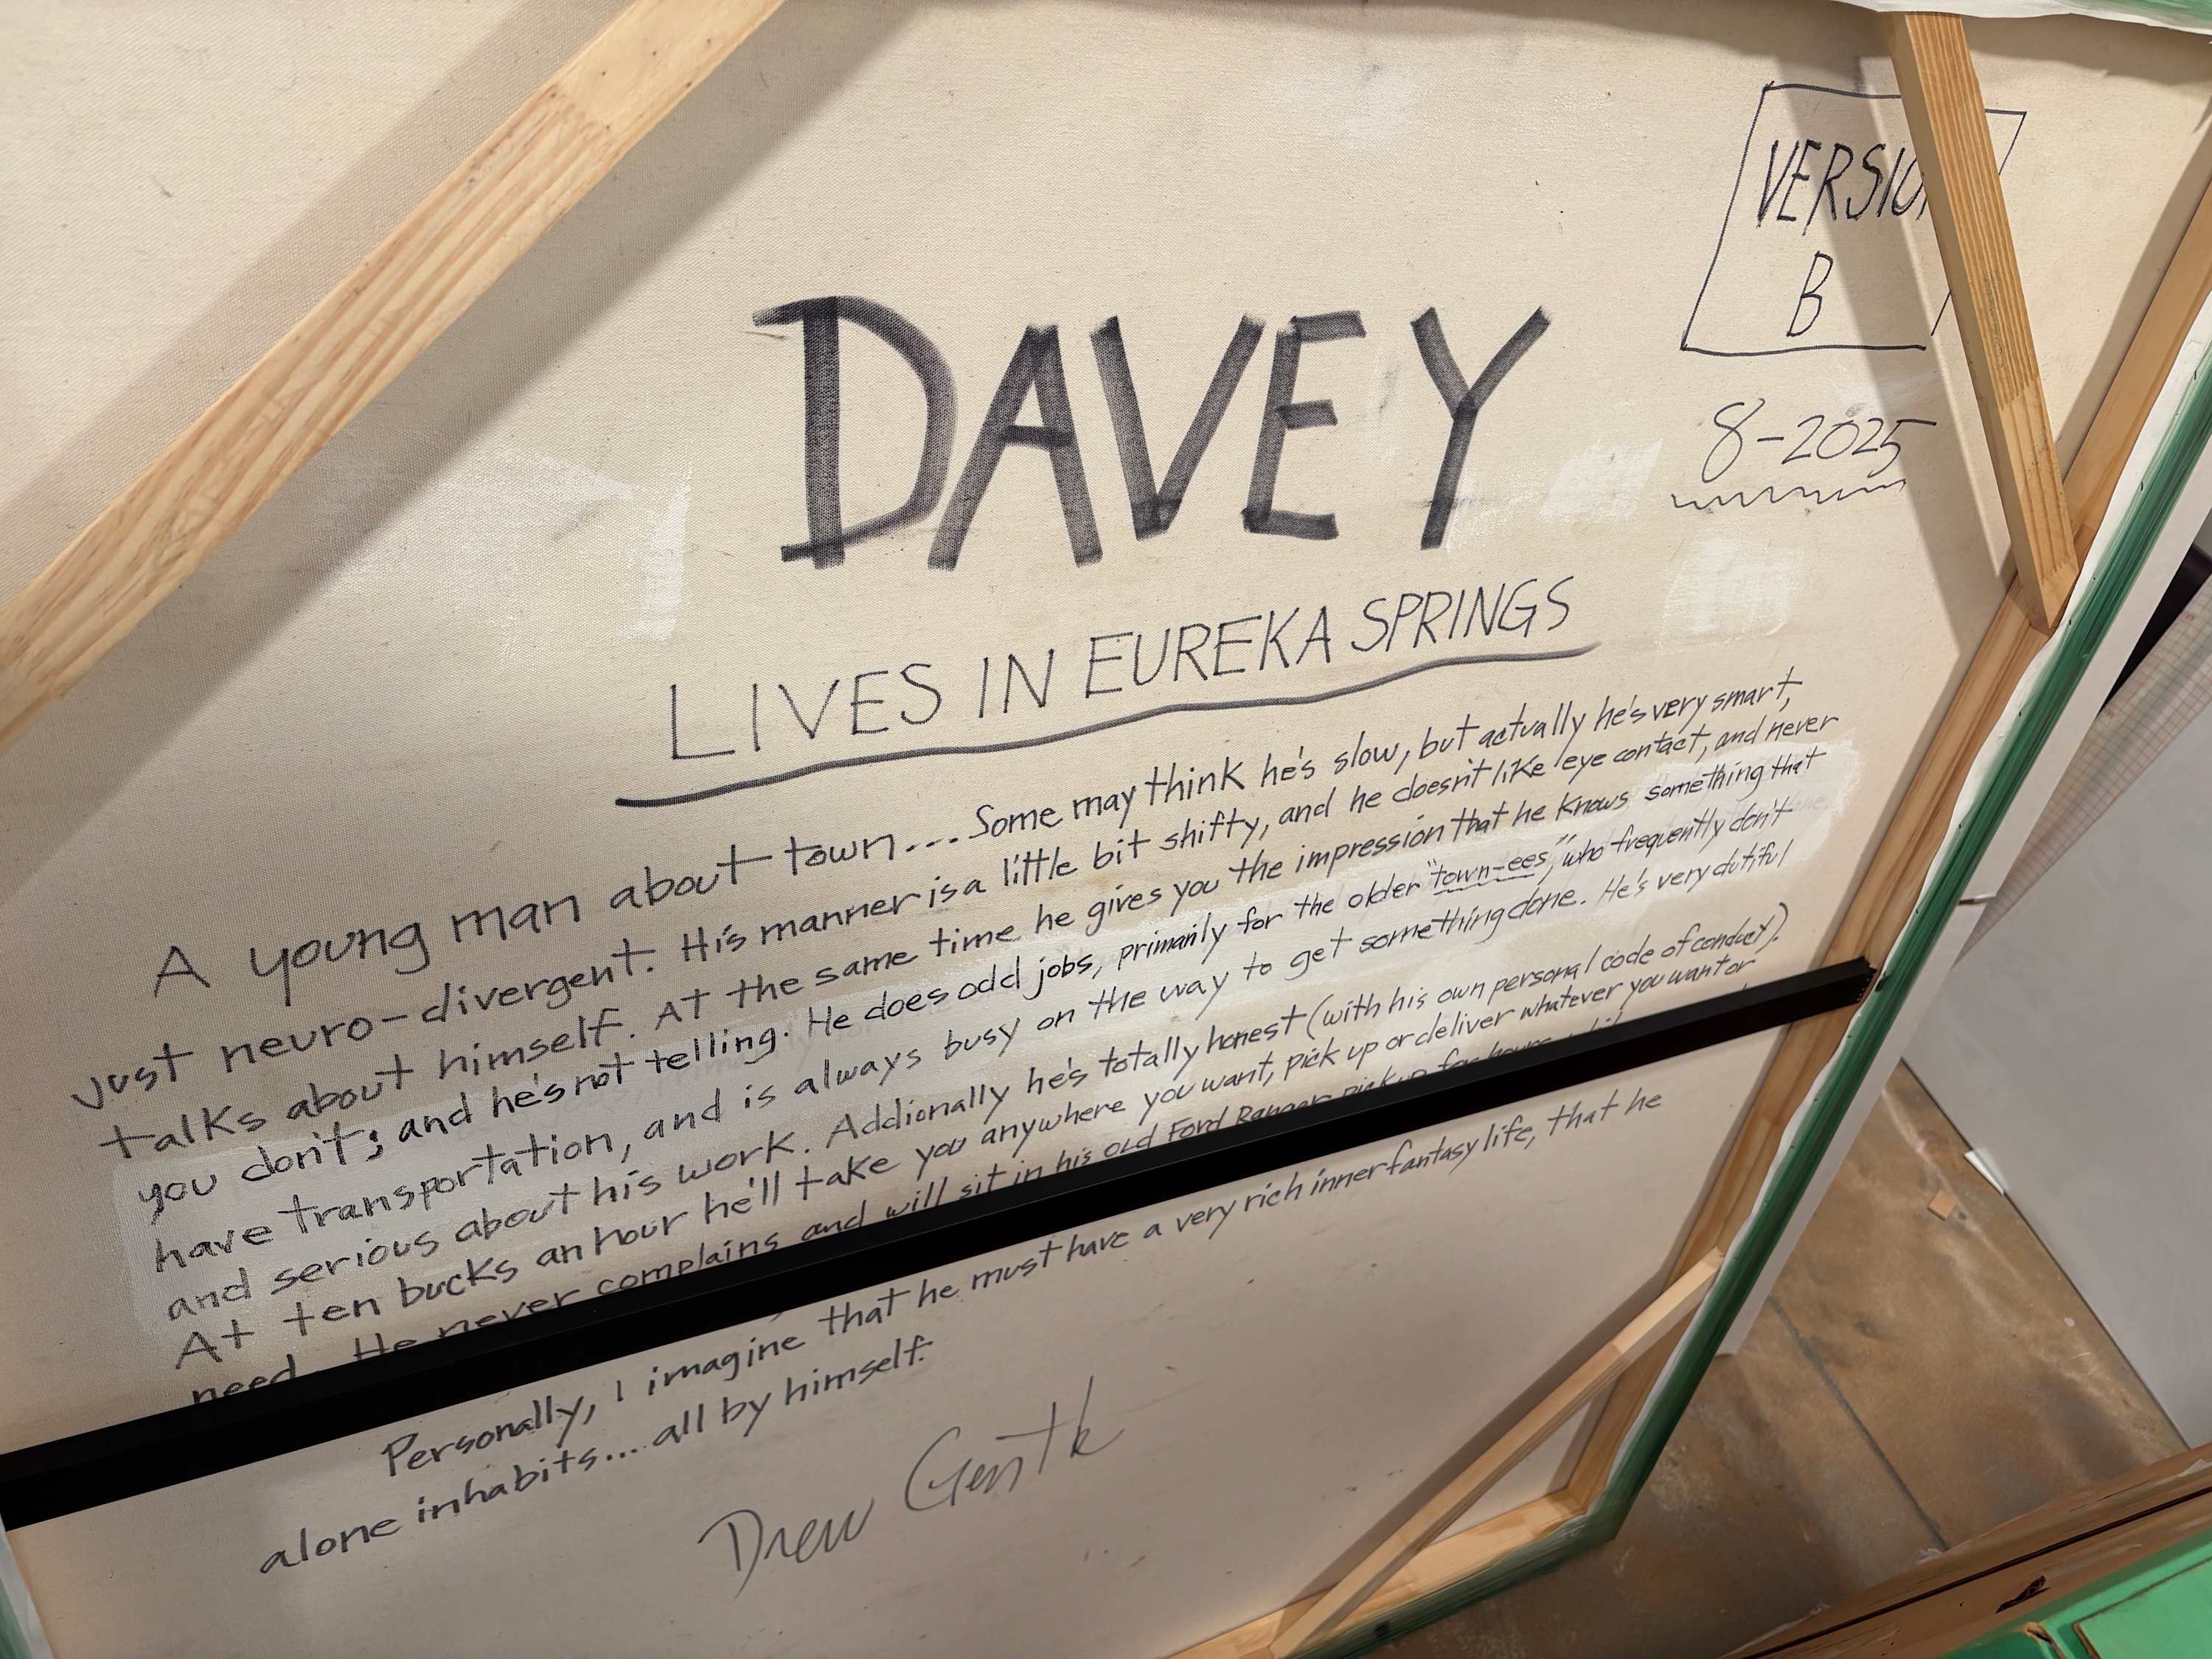 VERSIO
B
8-2025
DAVEY
LIVES IN EUREKA SPRINGS
A young man about town.... Some may think he's slow, but actually he's very smart,
just neuro-divergent. His manner is a little bit shifty, and he doesn't like eye contact, and never
talks about himself. At the same time he gives you the impression that he knows something that
you don't; and he's not telling. He does odd jobs, primarily for the older "town-ees", who frequently don't
have transportation, and is always busy on the way to get something done. He's very dutiful
and serious about his work. Addionally he's totally honest (with his own personal code of conduct).
At ten bucks an hour he'll take you anywhere you want, pick up or deliver whatever you want or
need. He never complains and will sit in his old Ford Ranger pickup for hours
Personally, I imagine that he must have a very rich inner fantasy life, that he
alone inhabits... all by himself.
Drew Gentle